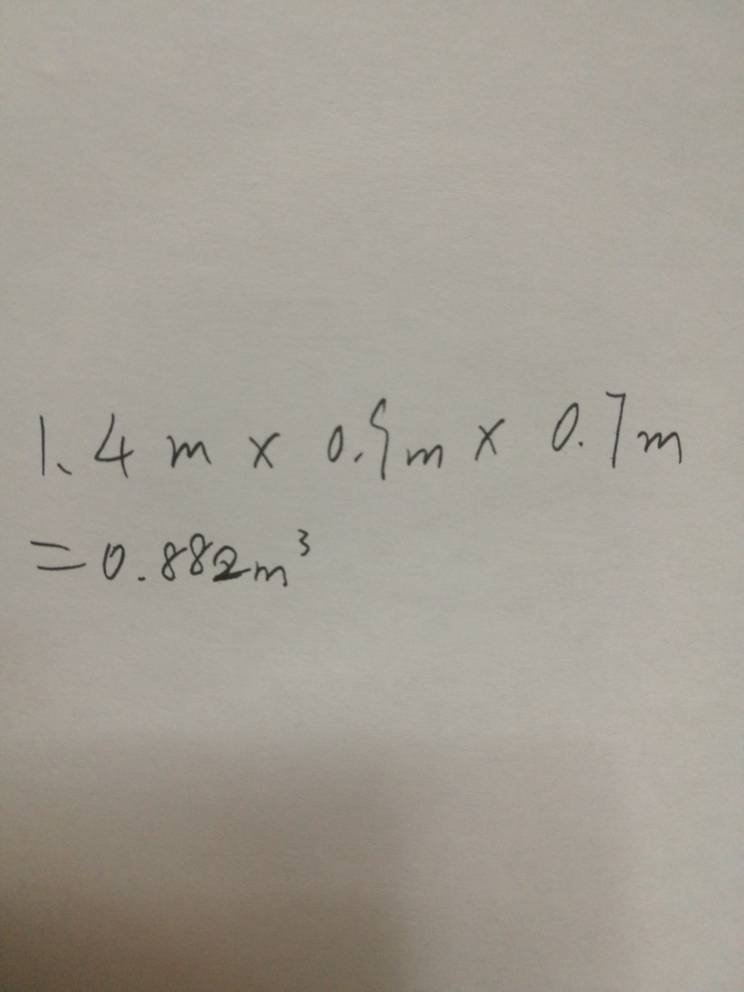 1.4m × 0.9m × 0.7m
=0.882m³